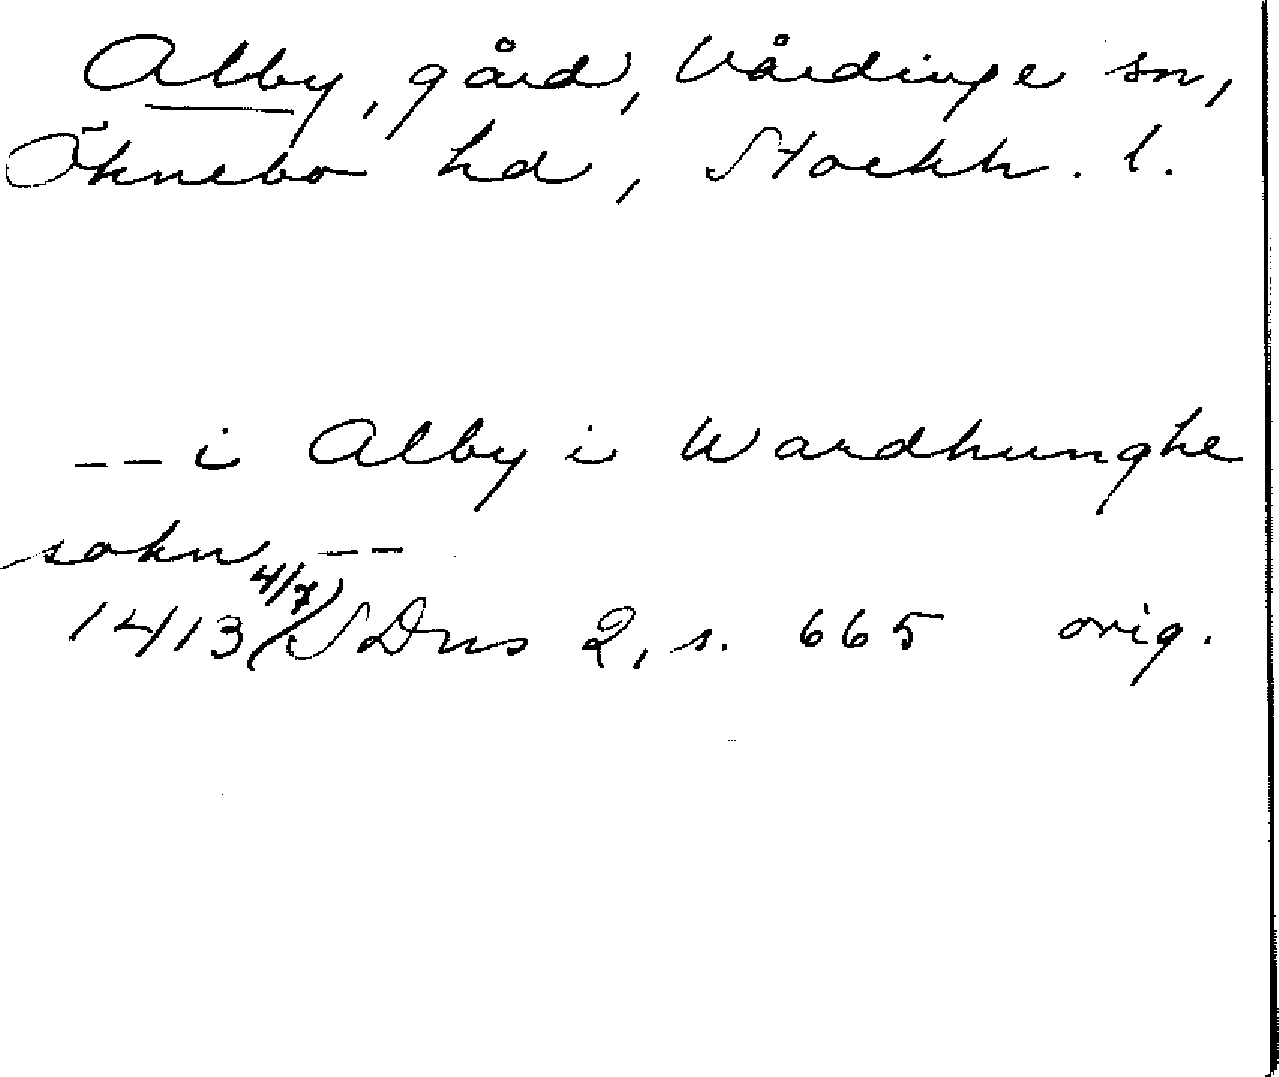 Alby, gård, Vårdinge sn,
Öknebo hd, Stockh. l.
-- i Alby i Wardhunghe
sokn --
1413 4/7 SDns 2, s. 665 orig.